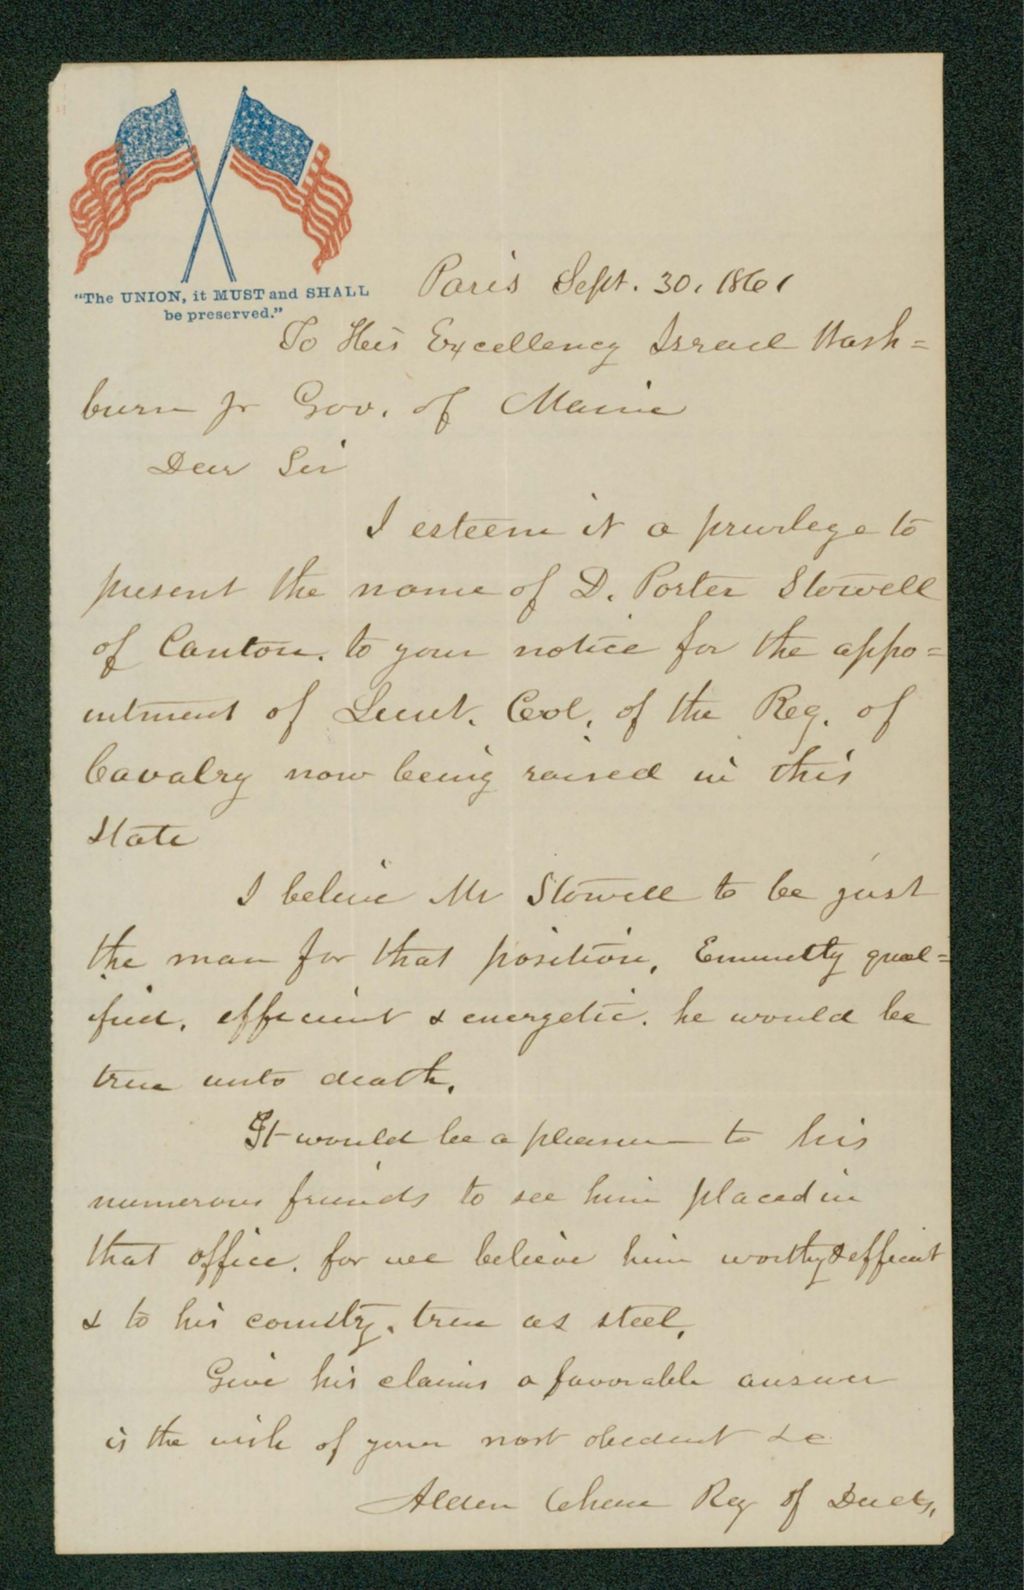 "The UNION, it MUST and SHALL
be preserved."
Paris Sept. 30, 1861
To His Excellency Israel Wash=
burn Jr Gov. of Maine
Dear Sir
I esteem it a privilege to
present the name of D. Porter Stowell
of Canton. to your notice for the appo=
intment of Lieut. Col. of the Reg. of
Cavalry now being raised in this
State
I believe Mr Stowell to be just
the man for that position, Eminetly qual=
ified, efficient & energetic. he would be
true unto death.
It would be a pleasure to his
numerous friends to see him placed in
that office. for we believe him worthy & efficent
& to his country, true as steel.
Give his claims a favorable answer
is the wish of your most obedient &c
Alden Chase Reg of Deeds.